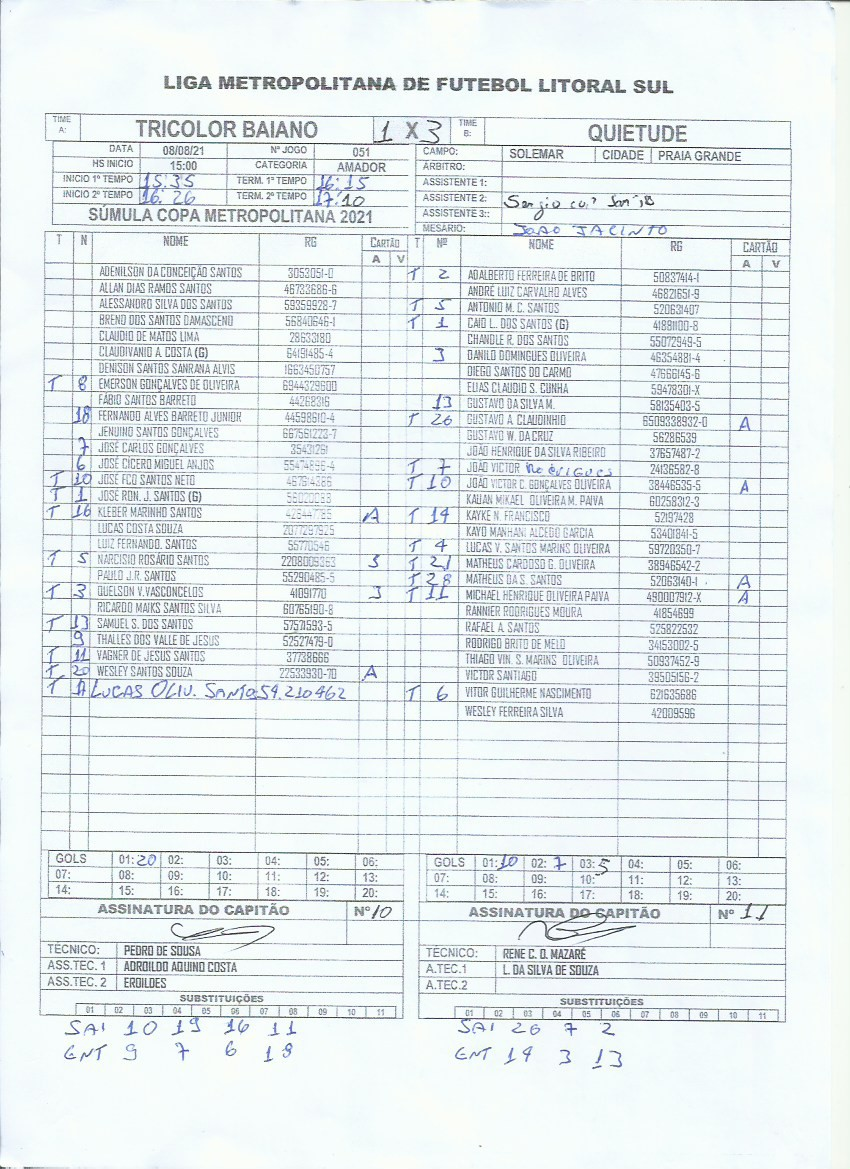 LIGA METROPOLITANA DE FUTEBOL LITORAL SUL
TIME A: TRICOLOR BAIANO 1 X 3 TIME B: QUIETUDE
DATA 08/08/21 Nº JOGO 051
HS INICIO 15:00 CATEGORIA AMADOR
INICIO 1º TEMPO 15:35 TERM. 1º TEMPO 16:15
INICIO 2º TEMPO 16:26 TERM. 2º TEMPO 17:10
SÚMULA COPA METROPOLITANA 2021
CAMPO: SOLEMAR CIDADE PRAIA GRANDE
ÁRBITRO:
ASSISTENTE 1:
ASSISTENTE 2: Sergio
ASSISTENTE 3::
MESÁRIO: JOAO JACINTO
T N NOME RG CARTÃO
A V
ADENILSON DA CONCEIÇÃO SANTOS 3053051-0
ALLAN DIAS RAMOS SANTOS 46733686-6
ALESSANDRO SILVA DOS SANTOS 59359928-7
BRENO DOS SANTOS DAMASCENO 56840646-1
CLAUDIO DE MATOS LIMA 28633180
CLAUDIVANIO A. COSTA (G) 64191485-4
DENISON SANTOS SANRANA ALVIS 1663450757
T 8 EMERSON GONÇALVES DE OLIVEIRA 6944329600
FÁBIO SANTOS BARRETO 44268316
18 FERNANDO ALVES BARRETO JUNIOR 44598610-4
JENUINO SANTOS GONÇALVES 667561223-7
7 JOSÉ CARLOS GONÇALVES 35431261
6 JOSÉ CÍCERO MIGUEL ANJOS 55474896-4
T 10 JOSÉ FCO SANTOS NETO 467914386
T 1 JOSÉ RON. J. SANTOS (G)
T 16 KLEBER MARINHO SANTOS A
LUCAS COSTA SOUZA 2077297925
LUIZ FERNANDO. SANTOS 55770546
T 5 NARCISIO ROSÁRIO SANTOS 2208009353 5
PAULO J.R. SANTOS 55290485-5
T 3 QUELSON V.VASCONCELOS 41091770 3
RICARDO MAIKS SANTOS SILVA 60765190-8
T 13 SAMUEL S. DOS SANTOS 57571593-5
9 THALLES DOS VALLE DE JESUS 52527479-0
T 11 VAGNER DE JESUS SANTOS 37738666
T 20 WESLEY SANTOS SOUZA 22533930-70 A
T LUCAS OLIV. SANTOS 59.210462
T Nº NOME RG CARTÃO
A V
T 2 ADALBERTO FERREIRA DE BRITO 50837414-1
ANDRÉ LUIZ CARVALHO ALVES 46821651-9
T 5 ANTONIO M. C. SANTOS 520631407
T 1 CAIO L. DOS SANTOS (G) 41881100-8
CHANDLE R. DOS SANTOS 55072949-5
3 DANILO DOMINGUES OLIVEIRA 46354881-4
DIEGO SANTOS DO CARMO 47666145-6
ELIAS CLAUDIO S. CUNHA 59478301-X
13 GUSTAVO DA SILVA M. 58135403-5
T 26 GUSTAVO A. CLAUDINHIO 6509338932-0 A
GUSTAVO W. DA CRUZ 56286539
JOÃO HENRIQUE DA SILVA RIBEIRO 37657487-2
T 7 JOÃO VICTOR RODRIGUES 24136582-8
T 10 JOÃO VICTOR C. GONÇALVES OLIVEIRA 38446535-5 A
KAUAN MIKAEL OLIVEIRA M. PAIVA 60258312-3
T 14 KAYKE N. FRANCISCO 52197428
KAYO MANHANI ALCEDO GARCIA 53401841-5
T 4 LUCAS V. SANTOS MARINS OLIVEIRA 59720350-7
T 21 MATHEUS CARDOSO G. OLIVEIRA 38946542-2
T 28 MATHEUS DA S. SANTOS 52063140-1 A
T 11 MICHAEL HENRIQUE OLIVEIRA PAIVA 490007912-X A
RANNIER RODRIGUES MOURA 41854699
RAFAEL A. SANTOS 525822532
RODRIGO BRITO DE MELO 34153002-5
THIAGO VIN. S. MARINS OLIVEIRA 50937452-9
VICTOR SANTIAGO 39505156-2
T 6 VITOR GUILHERME NASCIMENTO 621635686
WESLEY FERREIRA SILVA 42009596
GOLS 01: 20 02: 03: 04: 05: 06:
07: 08: 09: 10: 11: 12: 13:
14: 15: 16: 17: 18: 19: 20:
ASSINATURA DO CAPITÃO Nº 10
TÉCNICO: PEDRO DE SOUSA
ASS.TEC. 1 ADROILDO AQUINO COSTA
ASS.TEC. 2 EROILDES
SUBSTITUIÇÕES
01 02 03 04 05 06 07 08 09 10 11
SAI 10 19 16 11
ENT 9 7 6 18
GOLS 01: 10 02: 7 03: 5 04: 05: 06:
07: 08: 09: 10: 11: 12: 13:
14: 15: 16: 17: 18: 19: 20:
ASSINATURA DO CAPITÃO Nº 11
TÉCNICO: RENE C. O. MAZARÉ
A.TEC.1 L. DA SILVA DE SOUZA
A.TEC.2
SUBSTITUIÇÕES
01 02 03 04 05 06 07 08 09 10 11
SAI 26 7 2
ENT 14 3 13